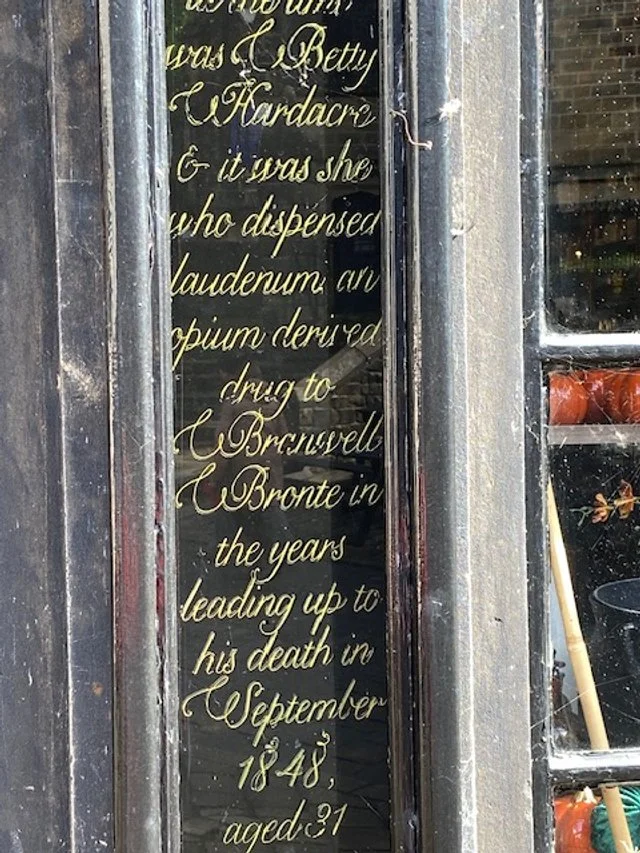 was Betty
Hardacre
& it was she
who dispensed
laudenum, an
opium derived
drug to
Branwell
Bronte in
the years
leading up to
his death in
September
1848,
aged 31